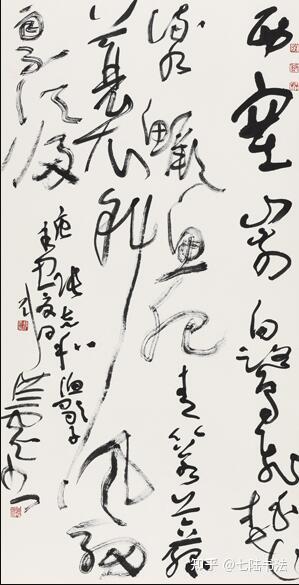 西塞山前白鹭飞桃花
流水鳜鱼肥青箬笠绿
蓑衣斜风细
雨不须归
唐张志和渔歌子
知乎 @七阵书法